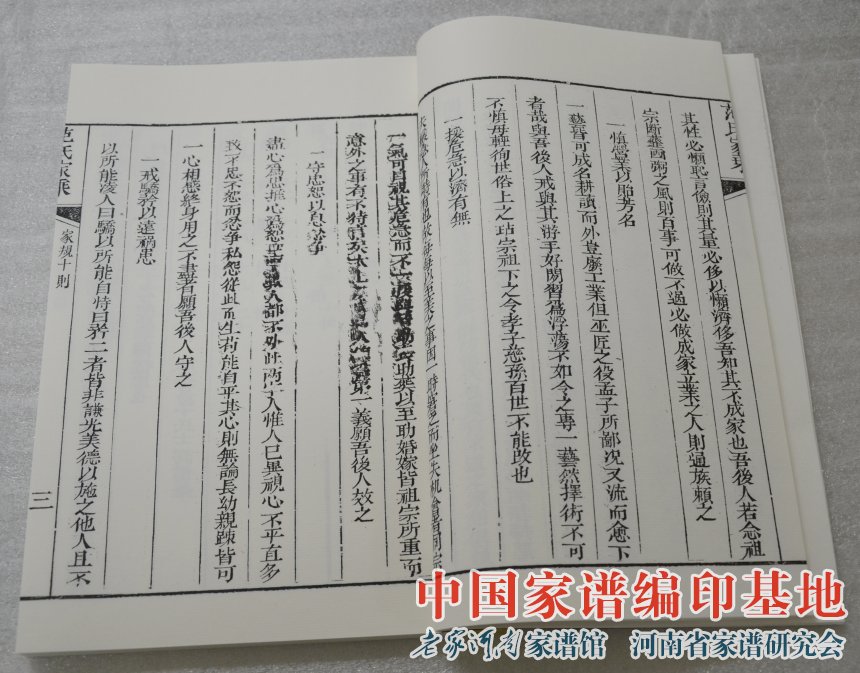 范氏家乘
其性必懶恥言儉則其量必侈以懶濟侈吾知其不成家也吾後人若念祖
宗斷虀畫粥之風則百事可做不過必做成家立業之人則通族賴之
一慎習業以貽芳名
一藝皆可成名耕讀而外豈廢工業但巫匠之役孟子所鄙況又流而愈下
者哉與吾後人戒與其游手好閒習為浮蕩不如令之專一藝然擇術不可
不慎毋輕徇世俗上之玷宗祖下之令孝子慈孫百世不能改也
一援危急以濟有無
一氣可自視其危急而不
助葬以至助婚嫁皆祖宗所重而
意外之事有不待
第一義願吾後人效之
一守忠恕以息紛爭
盡心為忠推心為恕
人都不外此兩
人惟人已異視心不平直多
致不忠不恕而忿爭私怨從此而生苟能自平其心則無論長幼親踈皆可
一心相感終身用之不盡者願吾後人守之
一戒驕矜以遠禍患
以所能凌人曰驕以所能自恃曰矜二者皆非謙光美德以施之他人且不
范氏家乘
家規十則
三
中国家谱编印基地
老家河南家谱馆 河南省家谱研究会